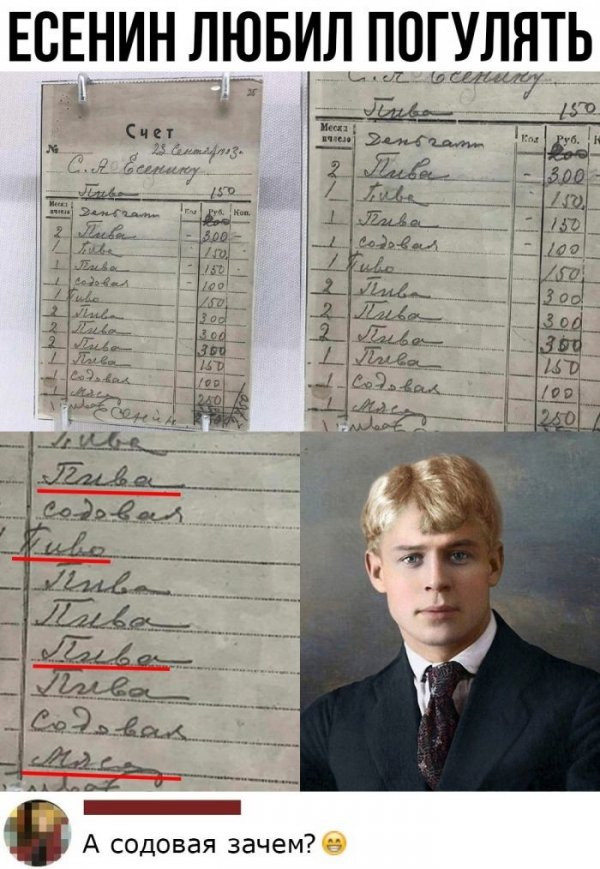 ЕСЕНИН ЛЮБИЛ ПОГУЛЯТЬ
25
Счет
№ 23 Сентября 1923г.
С. А. Есенину
Пива 150
Месяц и число Деньгами Коп Руб. Коп.
2 Пива - 300 -
1 Пива - 150
1 Пива - 150
1 содовая - 100
1 Пиво 150
2 Пива 300
2 Пива 300
2 Пива 300
1 Пива 150
1 Содовая 100
1 Мясо 250
Есенин
С. А. Есенину
Пива 150
Месяц и число Деньгами Коп Руб.
2 Пива - 300
1 Пива - 150
1 Пива - 150
1 содовая - 100
1 Пиво 150
2 Пива 300
2 Пива 300
2 Пива 300
1 Пива 150
1 Содовая 100
1 Мясо 250
Пива
Пива
содовая
Пиво
Пива
Пива
Пива
Пива
Содовая
Мясо
А содовая зачем?😁